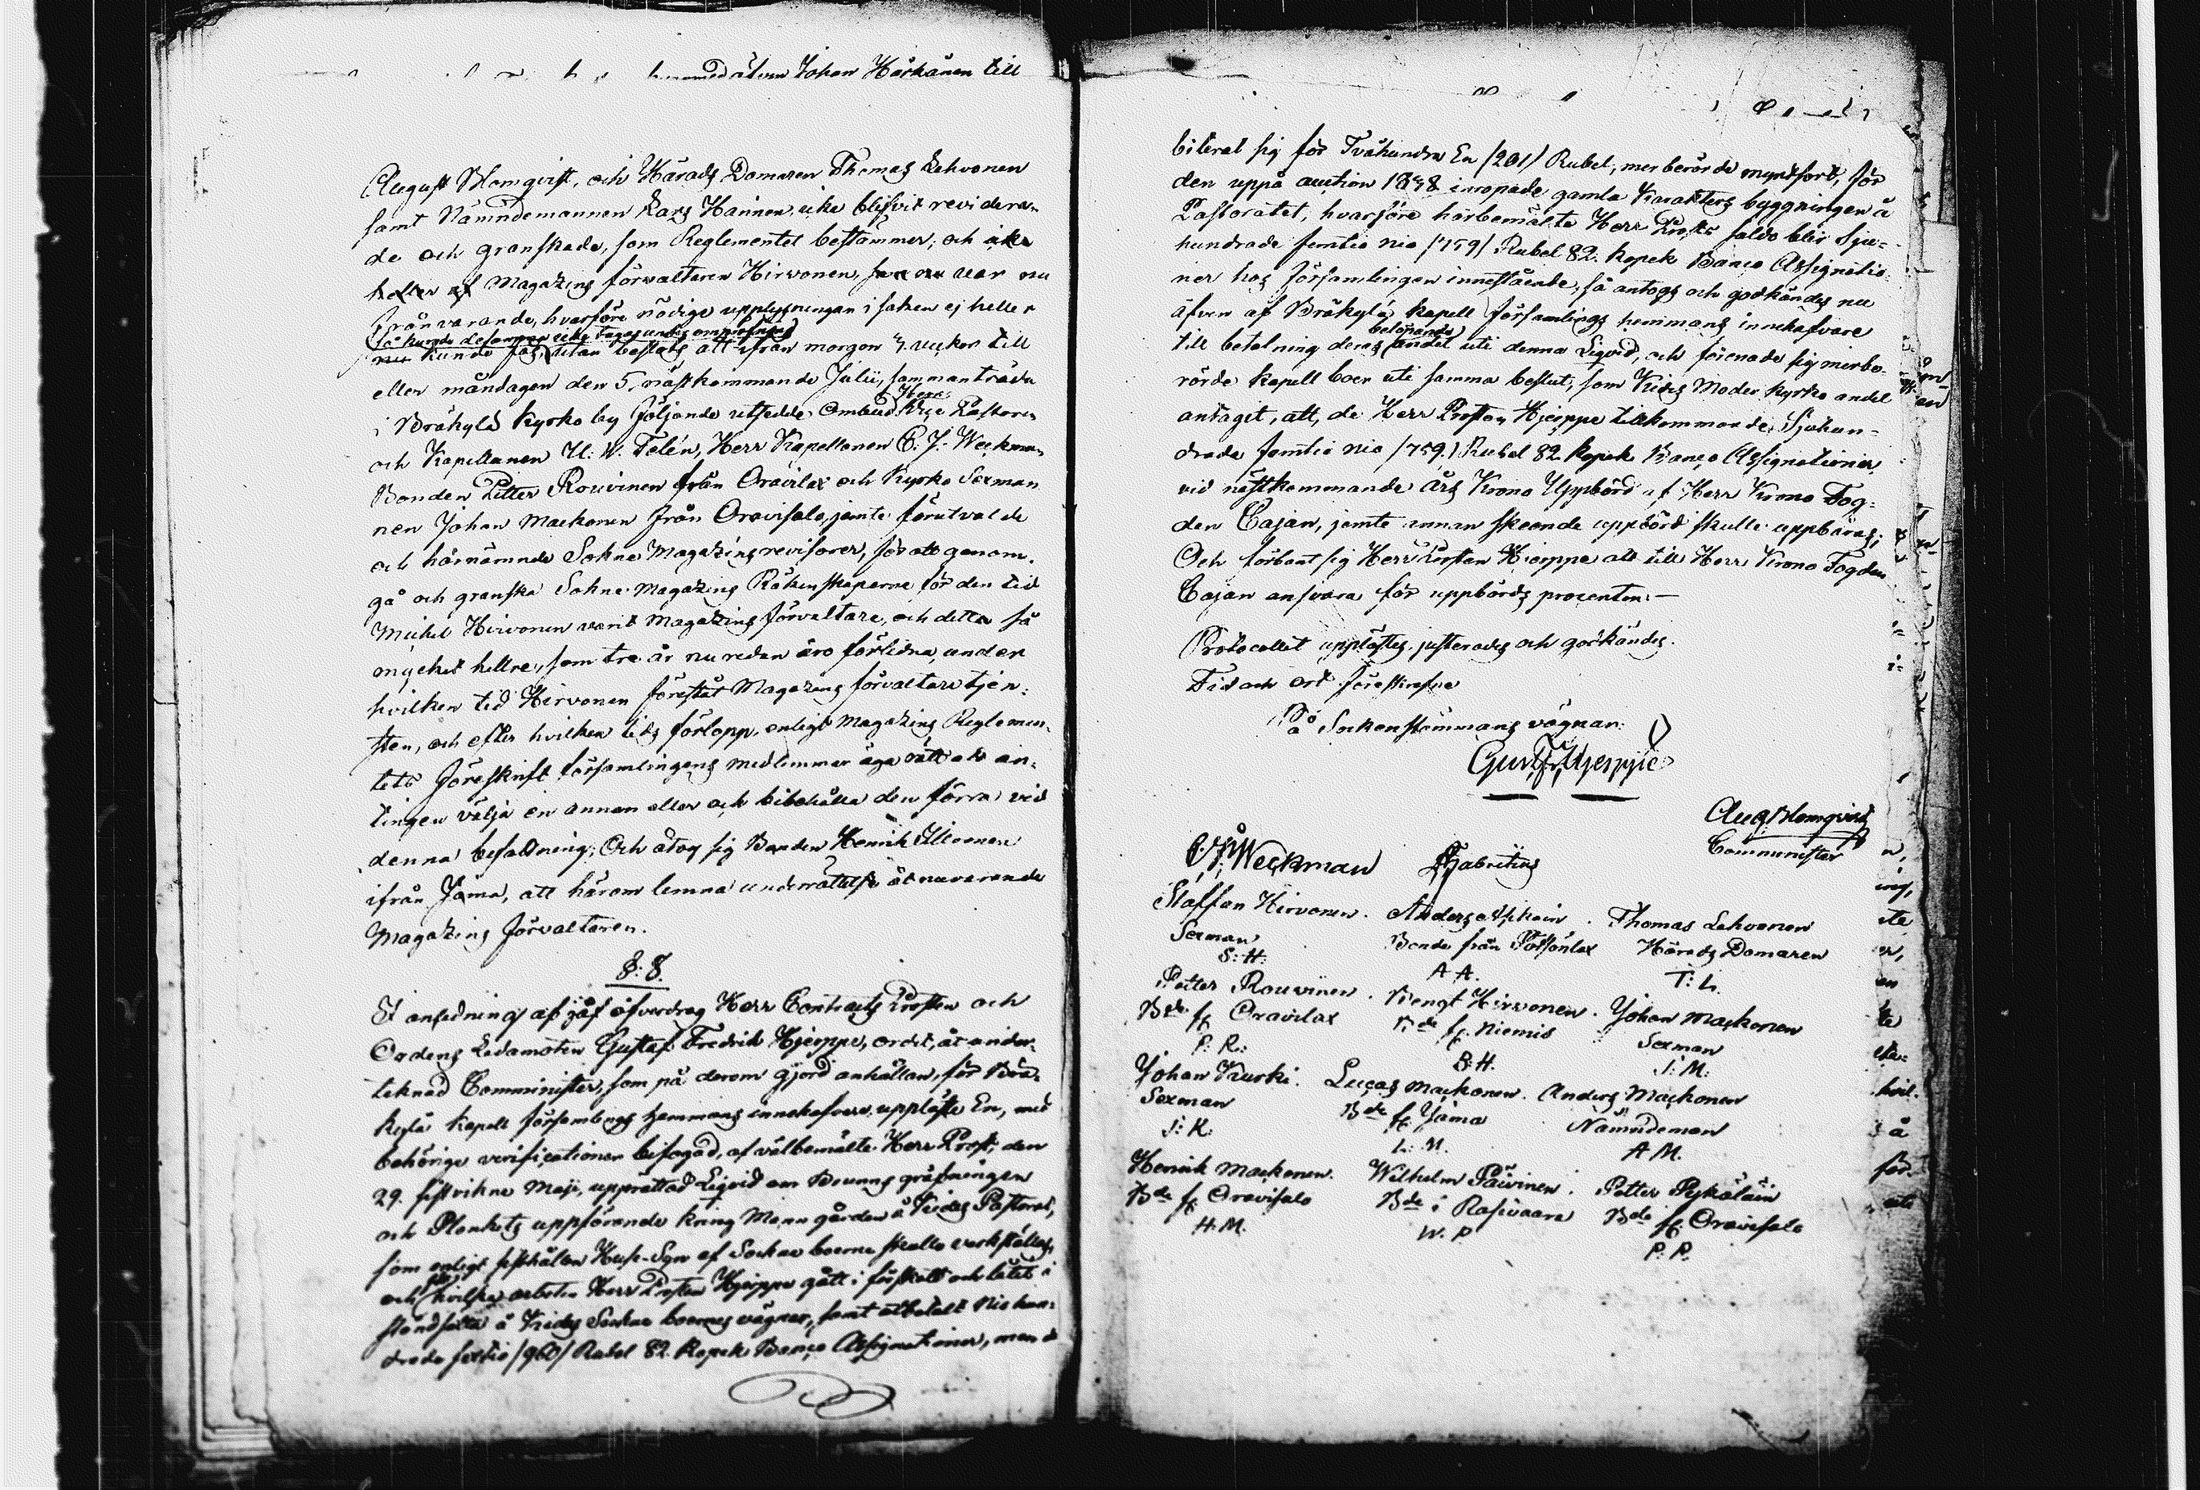 Johan Härkänen till
August Blomqvist, och Härads Domaren Thomas Lehvonen
samt Nämndemannen Lars Hainen, icke blifvit revidera-
de och granskade, som Reglementet bestämmer, och icke
heller af Magazins förvaltaren Hirvonen, som nu var nu
frånvarande, hvarföre nödige upplysningar i saken ej heller
så kunde desamma icke tagas under ompröfning
nu kunde fås, utan beslöts att ifrån morgon 3 veckor till
eller måndagen den 5 nästkommande Julii, sammanträda
i Bräkylä Kyrko by följande utsedde Ombud Herr Vice Pastorn
och Kapellanen U. W. Telén, Herr Kapellanen C. J. Weckman
Bonden Petter Rouvinen från Oravilax och Kyrko Sexman
nen Johan Mackonen från Oravisalo, jemte förutvalde
och härnämnde Sokne Magazins revisorer, för att genom-
gå och granska Sokne Magazins Räkenskaperne för den tid
Michel Hirvonen varit Magazins förvaltare, och detta så
mycket hellre, som tre år nu redan äro förlidna, under
hvilken tid Hirvonen förestått Magazins förvaltare tjen-
sten, och efter hvilken tids förlopp, enligt Magazins Reglemen-
tets föreskrift församlingens medlemmar äga rätt att an-
tingen välja en annan eller och bibehålla den förra vid
denna befattning; Och åtog sig Bonden Henrik Ikonen
ifrån Jama, att härom lemna underrättelse åt nuvarande
Magazins förvaltaren.
§: 8.
I anledning af Herr Contracts Prosten och
Ordens Ledamoten Gustaf Fredrik Hjerppe, ordet, åt under-
teknad Comminister, som på derom gjord anhållan, för Brä-
kylä Kapell församlings hemmans innehafvare, uppläste En, med
behörige verificationer bifogad, af välbemälte Herr Prost, den
29 sistvikne Maji, upprättad Liqvid om Brunns gräfningen
och Plankets uppförande kring Mann gården å Kides Pastorat,
som enligt sisthållen Huse-Syn af Sockne boerne skulle verkställas,
och för hvilka arbeten Herr Prosten Hjerppe gått i förskott och låtit i
stånd sätta å Kides Sockne boernes vägnar, samt utbetalt Niohun-
drade sextio /960/ Rubel 82 Kopek Banco Assignationer, men de
biterat sig för Tvåhundra En /201/ Rubel, merberörde myntsort, för
den uppå auction 1838 inropade gamla Karakters byggningen å
Pastoratet, hvarföre härbemälte Herr Prosts saldo blir Sju-
hundrade femtio nio /759/ Rubel 82 Kopek Banco Assignatio-
ner hos församlingen innestående, så antogs och godkändes nu
äfven af Bräkylä kapell församlings hemmans innehafvare
till betalning deras belöpande andel uti denna Liqvid, och förenade sig merbe-
rörde kapell boer uti samma beslut, som Kides Moder kyrko andel
antaget, att, de Herr Prosten Hjerppe tillkommande Sjuhun-
drade femtio nio /759/ Rubel 82 Kopek Banco Assignationer
vid nästkommande års Krono Uppbörd af Herr Krono Fog-
den Cajan, jemte annan skeende uppbörd skulle uppbäras;
Och förband sig Herr Prosten Hjerppe att till Herr Krono Fogden
Cajan ansvara för uppbörds procenten. —
Protocollet upplästes, justerades och godkändes.
Tid och ort föreskrefne
På Sockenstämmans vägnar:
Gust. Fr. Hjerppe
Aug Blomqvist
Comminister
C. J. Weckman Fabritius
Staffan Hirvonen. Anders Asikain. Thomas Lehvonen
Sexman Bonde från Potsönlax Härads Domaren
S: H: A A. T: L.
Petter Rouvinen. Bengt Hirvonen. Johan Mackonen
Bde fr Oravilax Bde fr. Niemis Sexman
P: R: B: H. J: M:
Johan Kurki. Lucas Mackonen. Anders Mackonen
Sexman Bde fr Jama Nämndeman
J: K: L: M. A M.
Henrik Mackonen. Wilhelm Päivinen. Petter Pykäläin
Bde fr Oravisalo Bde i Rasivaara Bde fr Oravisalo
H: M. W. P P: P.